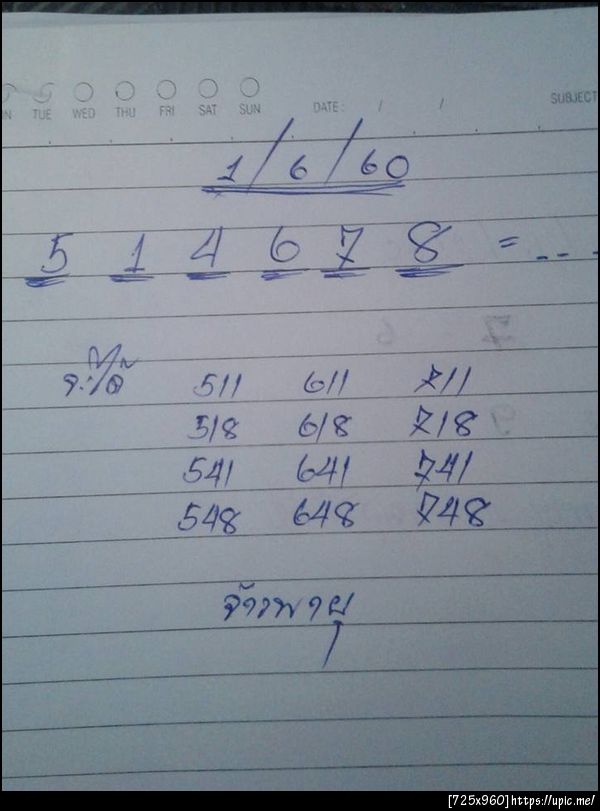 TUE WED THU FRI SAT SUN DATE : / / SUBJECT
1/6/60
5 1 4 6 7 8 = ...
จะได้ 511 611 711
518 618 718
541 641 741
548 648 748
จ้าวพายุ
[725x960]https://upic.me/